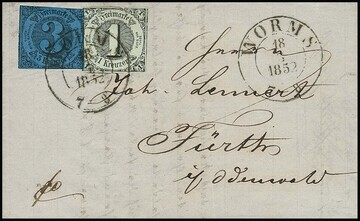 Freimarke
3
Freimarke
1
1 Kreuzer
1852
WORMS
18
1852
Herrn
Joh. Lennert
Fürth
i/Odenwald